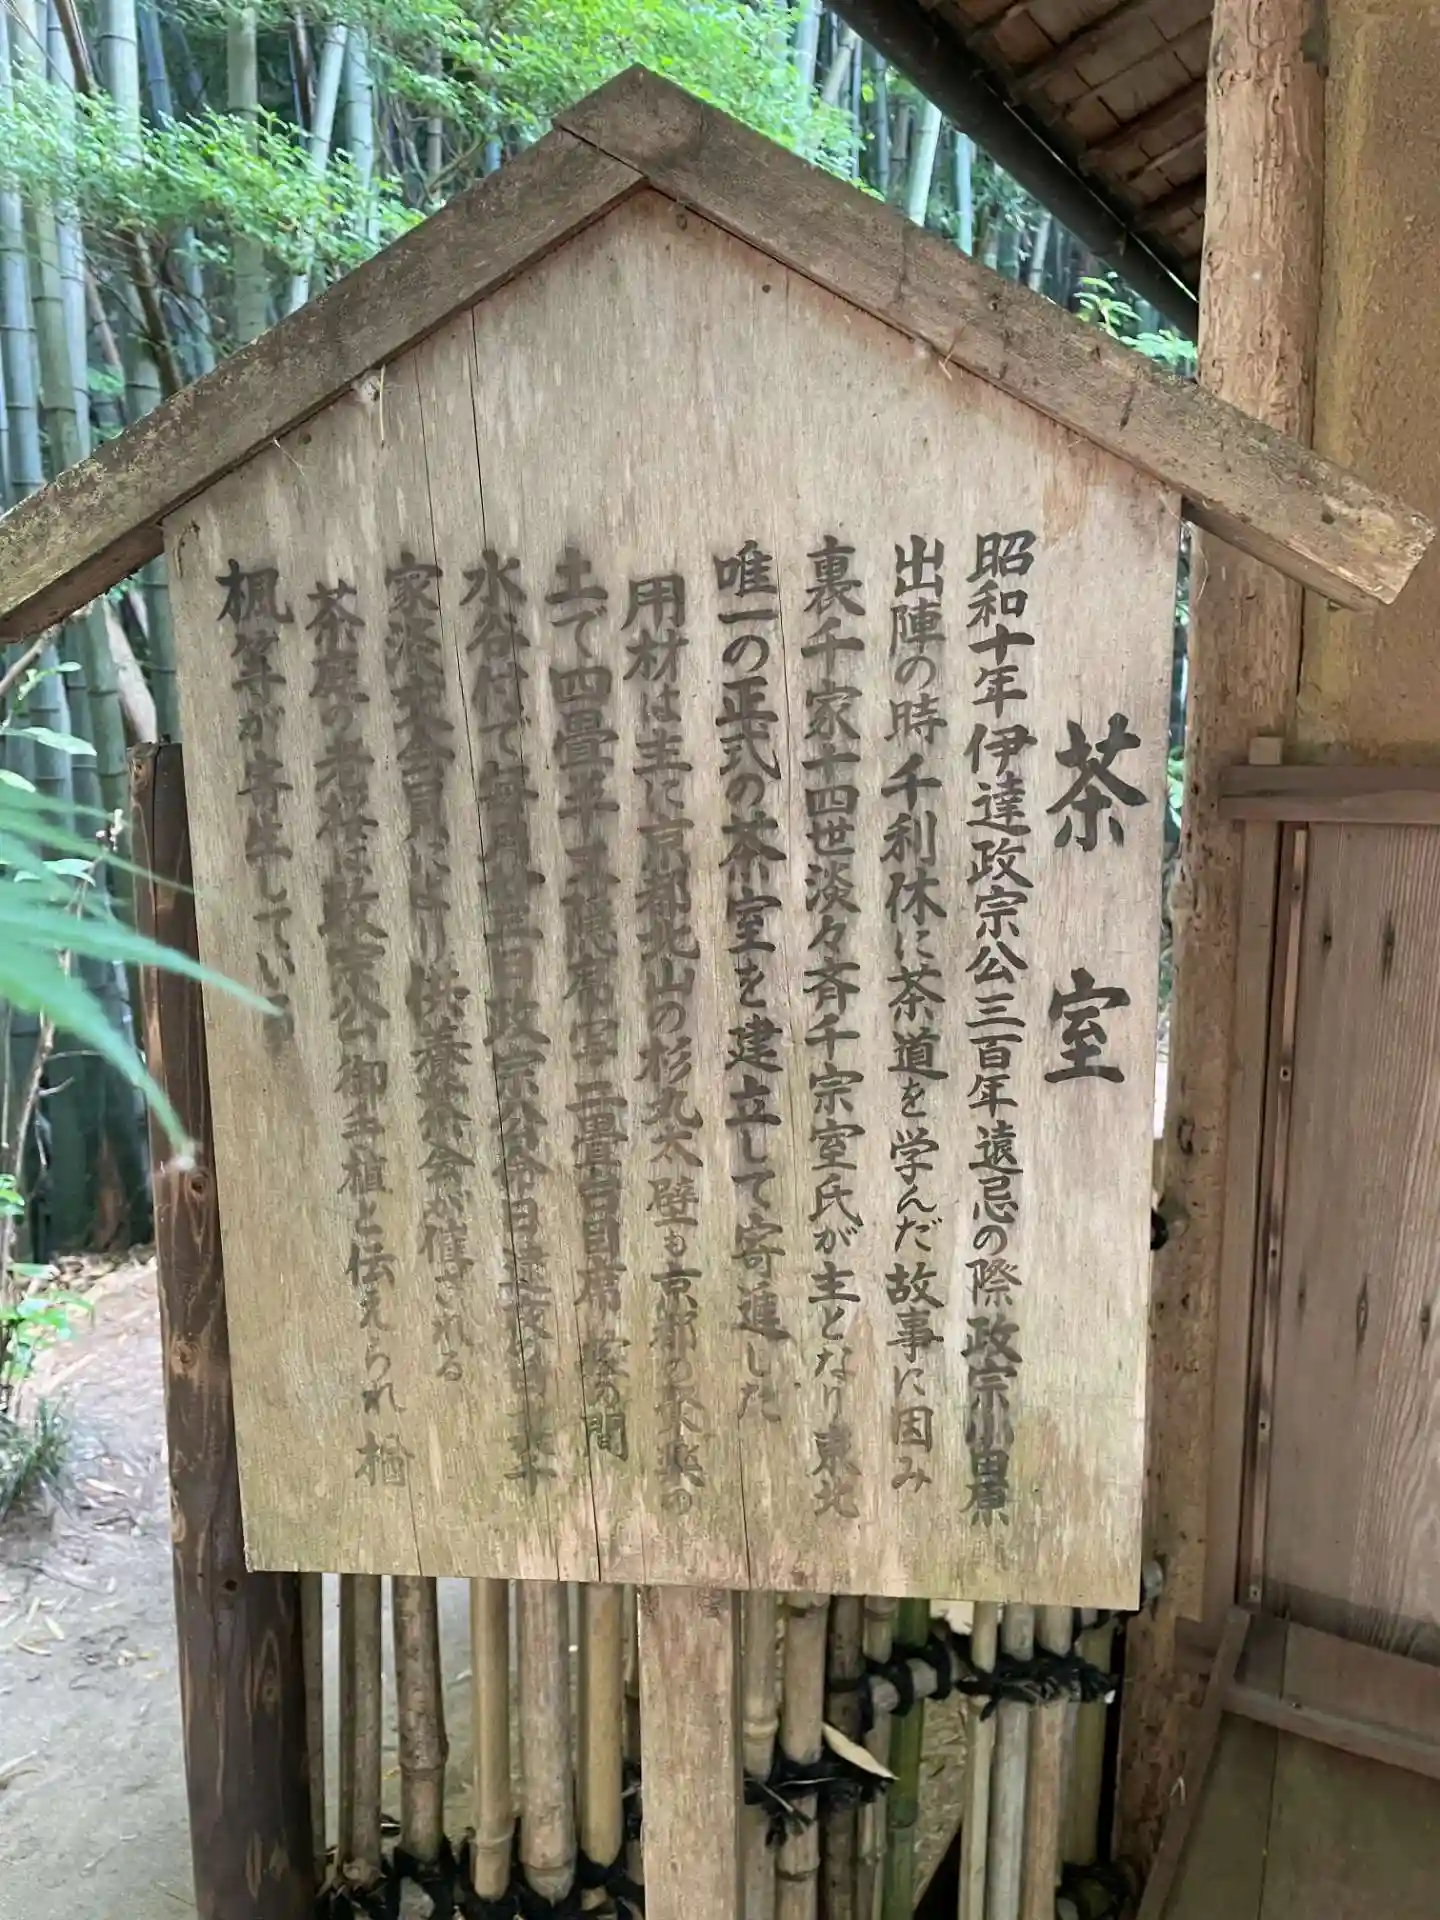 茶室
昭和十年伊達政宗公三百年遠忌の際政宗小田原
出陣の時千利休に茶道を学んだ故事に因み
裏千家十四世淡々斉千宗室氏が主となり東北
唯一の正式の茶室を建立して寄進した
用材は主に京都北山の杉丸太壁も京都の聚楽の
土で四畳半又隠席写二畳台目席 の間
水谷付で毎月 日政宗公命日 裏千
家淡交会員により供養茶会が催される
茶庭の老桜は政宗公御手植と伝えられ 楢
楓等が寄生している